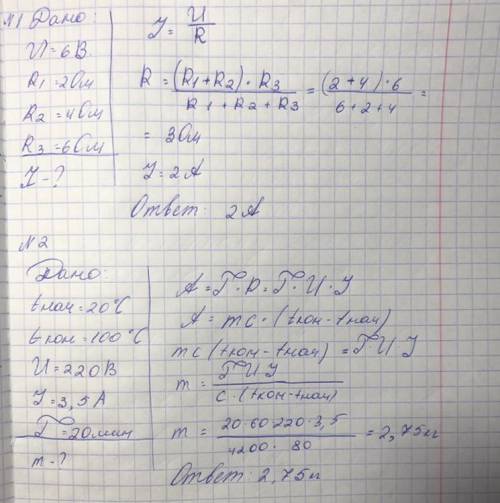 №1 Дано:
U = 6 В
R1 = 2 Ом
R2 = 4 Ом
R3 = 6 Ом
I - ?
I = U / R
R = (R1 + R2) · R3 / R1 + R2 + R3 = (2 + 4) · 6 / 6 + 2 + 4 =
= 3 Ом
I = 2 А
Ответ: 2 А
№2
Дано:
tнач = 20°C
tкон = 100°C
U = 220 В
I = 3,5 А
T = 20 мин
m - ?
A = T · P = T · U · I
A = mc · (tкон - tнач)
mc (tкон - tнач) = T U I
m = T U I / c · (tкон - tнач)
m = 20 · 60 · 220 · 3,5 / 4200 · 80 = 2,75 кг
Ответ: 2,75 кг